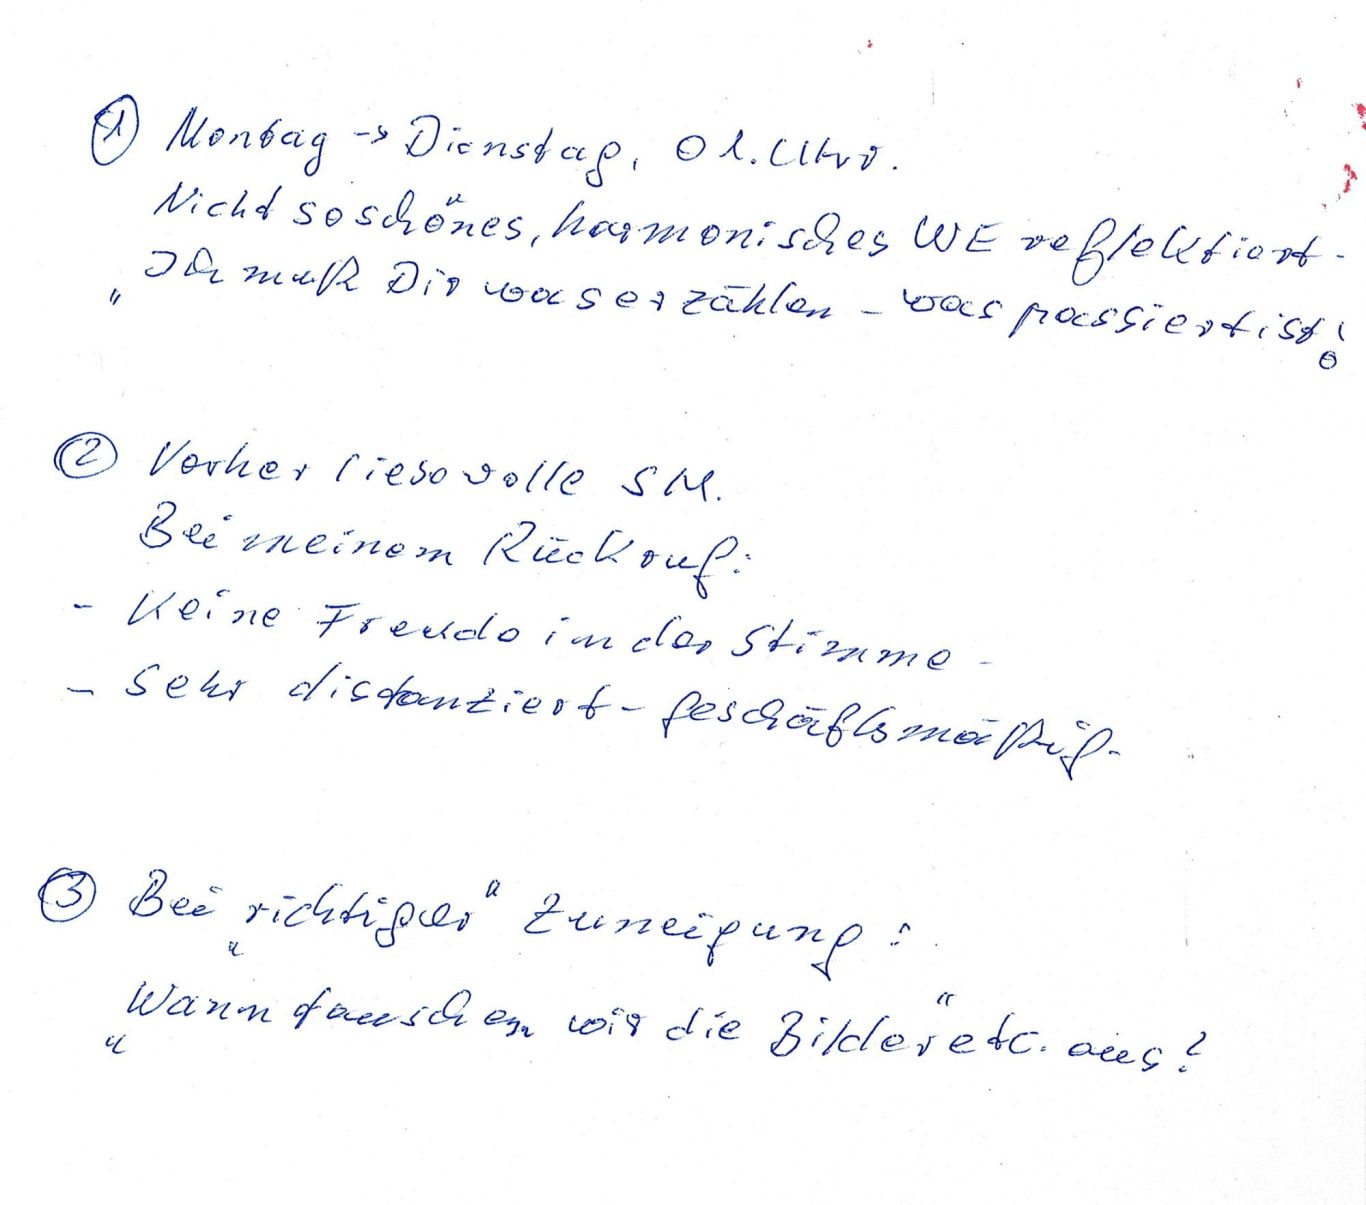 ① Montag → Dienstag, 01. Uhr.
Nicht so schönes, harmonisches WE reflektiert -
„Ich muß Dir was erzählen - was passiert ist!
② Vorher liebevolle SM.
Bei meinem Rückruf:
- Keine Freude in der Stimme -
- Sehr distanziert - geschäftsmäßig -
③ Bei „richtiger“ Zuneigung:
„Wann tauschen wir die Bilder“ etc. aus?